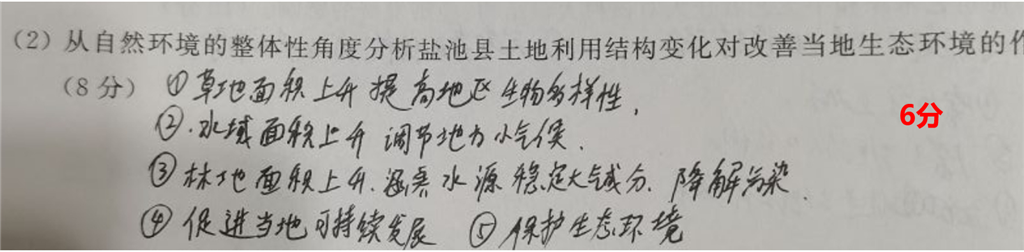 (2)从自然环境的整体性角度分析盐池县土地利用结构变化对改善当地生态环境的作
(8分) ①草地面积上升提高地区生物多样性,
②.水域面积上升 调节地方小气候.
6分
③林地面积上升.涵养水源 稳定大气成分. 降解污染
④促进当地可持续发展 ⑤保护生态环境